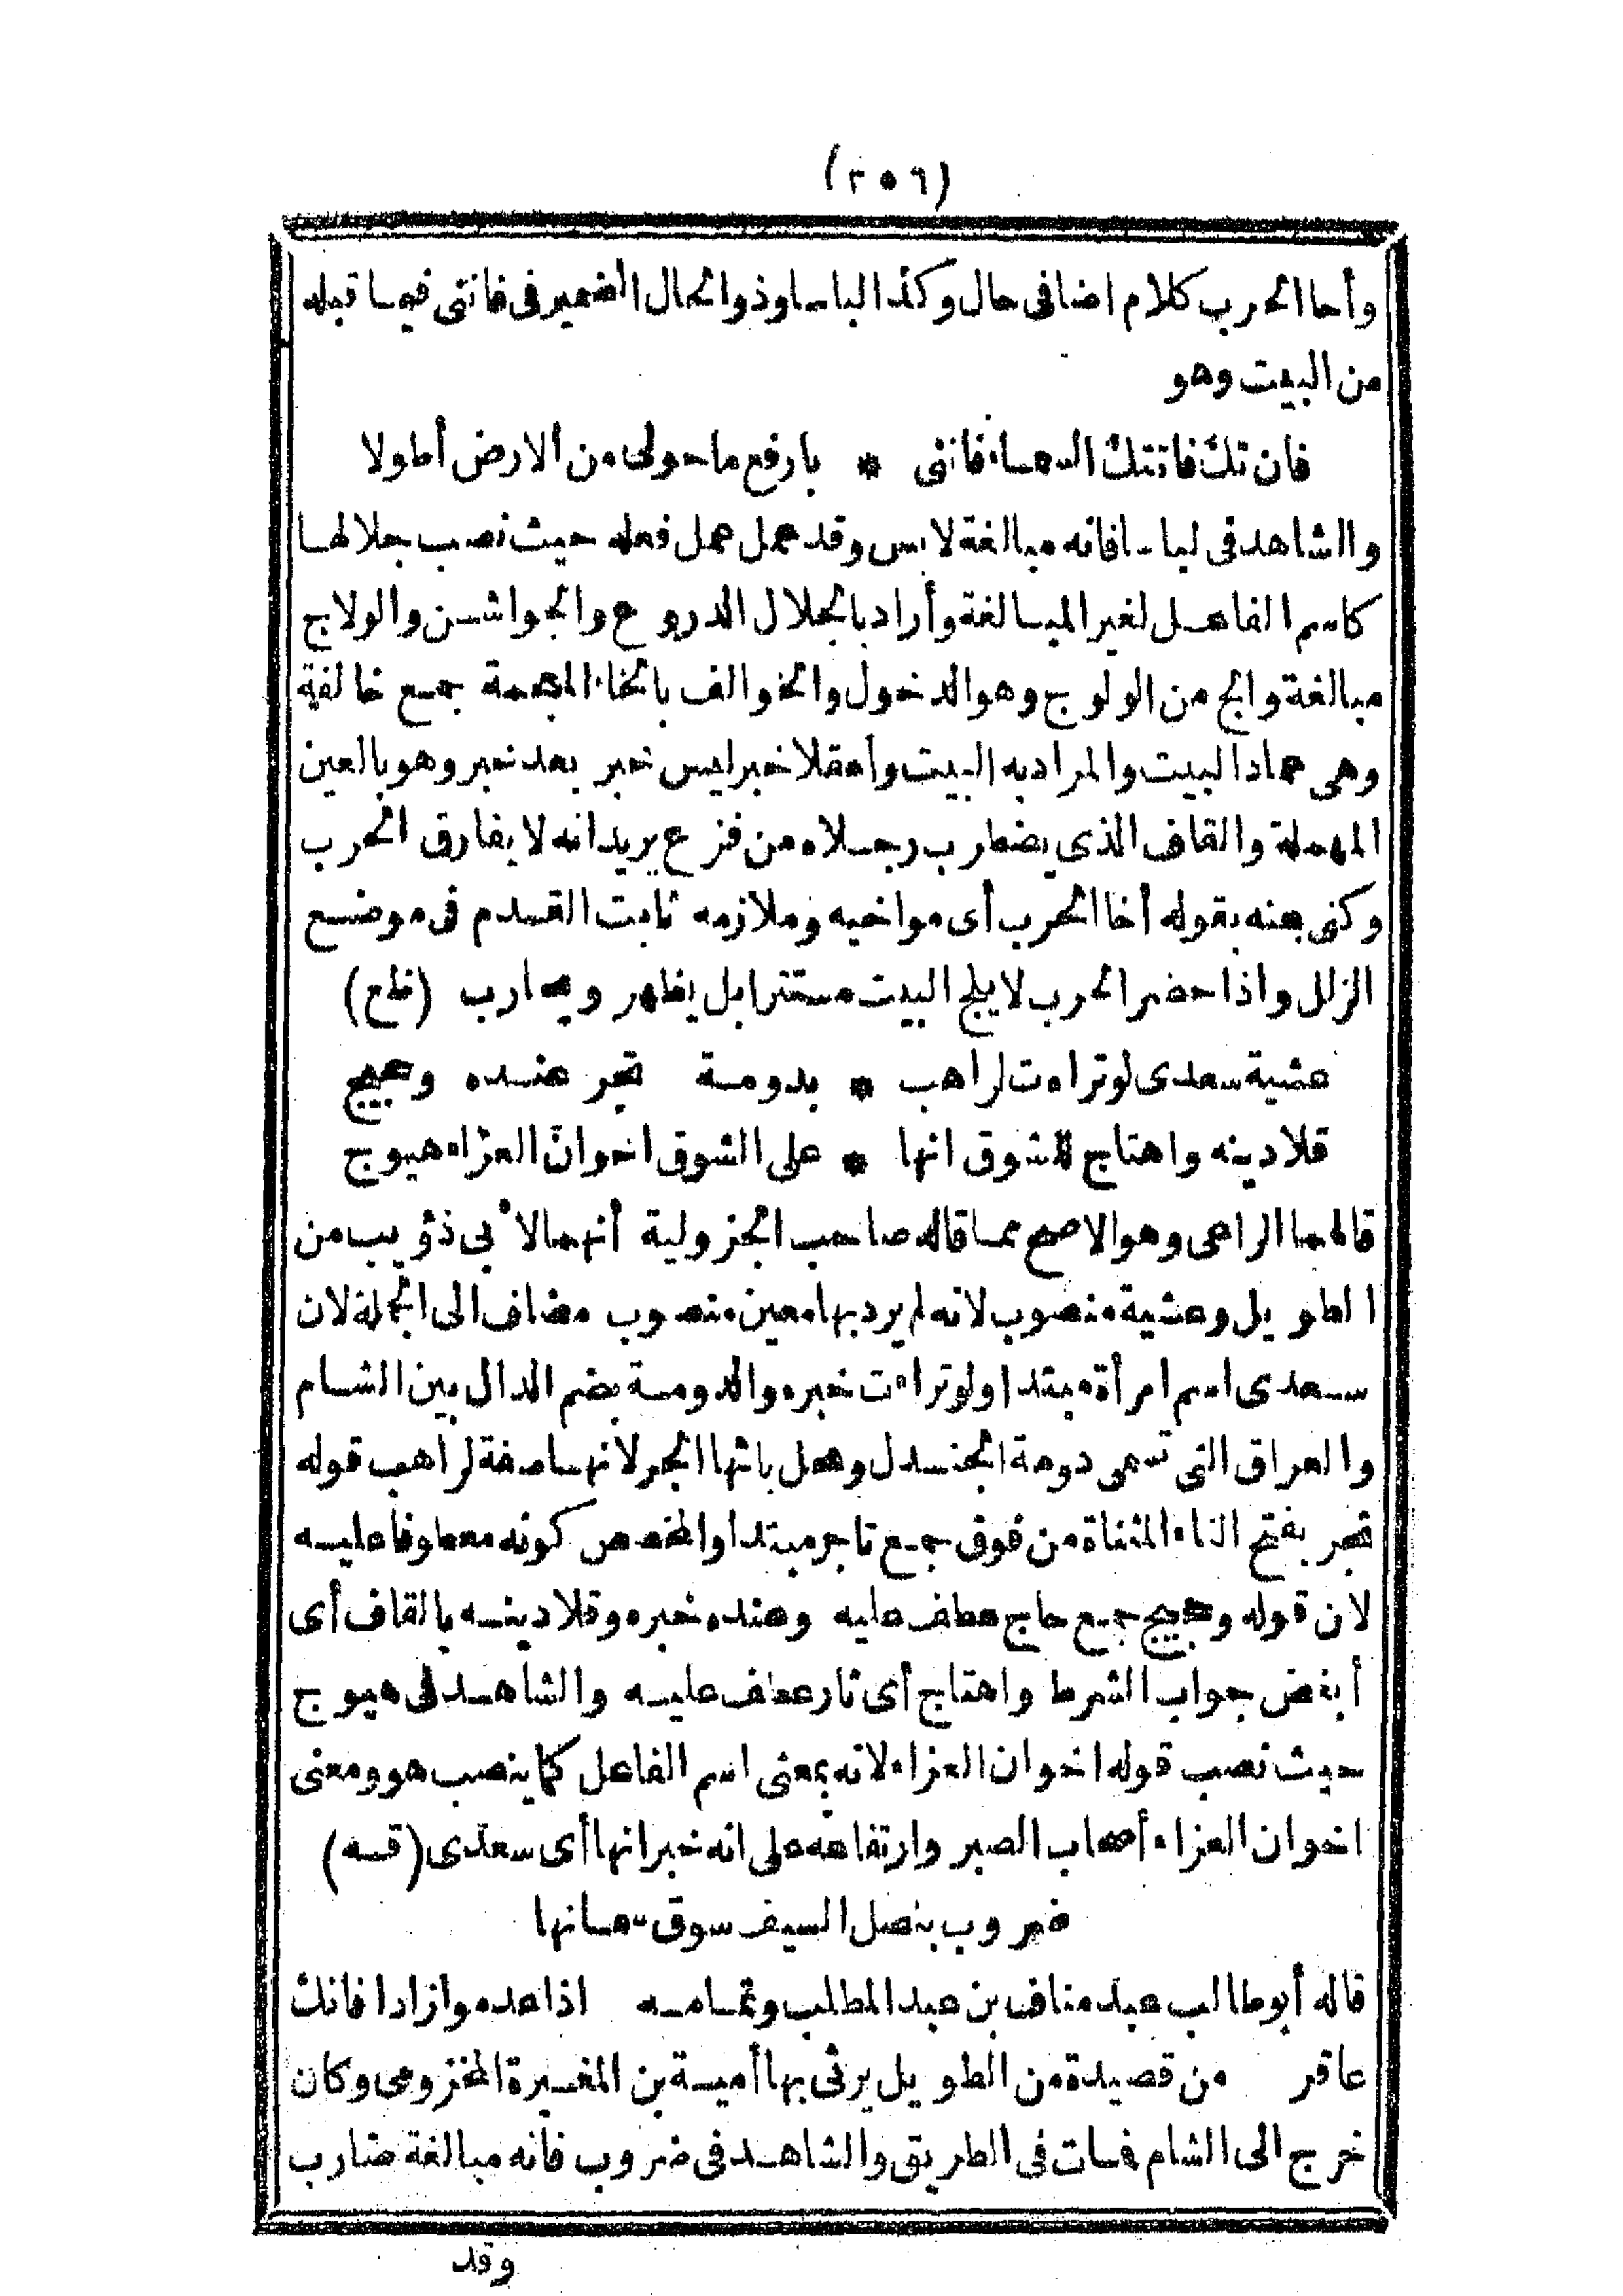 (٢٥٦)
وأخا الحرب كلام اضافى حال وكذا لباسا وذو الحال الضمير فى فاننى فيما قبله
من البيت وهو
فان تك فاتتك السماء فاننى * بارفع ما حولى من الارض أطولا
والشاهد فى لباسا فانه مبالغة لابس وقد عمل عمل فعله حيث نصب جلالها
كاسم الفاعل لغير المبالغة وأراد بالجلال الدروع والجواشن والولاج
مبالغة والج من الولوج وهو الدخول والخوالف بالخاء المعجمة جمع خالفة
وهى عماد البيت والمراد به البيت وأعقلا خبر ليس خبر بعد خبر وهو بالعين
المهملة والقاف الذى يضطرب رجلاه من فزع يريد انه لا يفارق الحرب
وكنى عنه بقوله أخا الحرب أى مواخيه وملازمه ثابت القدم فى موضع
الزلل واذا حضر الحرب لا يلج البيت مستترا بل يظهر ويحارب (ظع)
عشية سعدى لو تراءت لراهب * بدومة تجر عنده وحجيج
قلا دينه واهتاج للشوق انها * على الشوق اخوان العزاء هيوج
قالهما الراعى وهو الاصح مما قاله صاحب الجزولية أنهما لأبى ذؤيب من
الطويل وعشية منصوب لانه لم يرد بها معين منصوب مضاف الى الجملة لان
سعدى اسم امرأة مبتدا ولو تراءت خبره والدومة بضم الدال بين الشام
والعراق التى تسمى دومة الجندل ومحل بائها الجر لانها صفة لراهب قوله
تجر بفتح التاء المثناة من فوق جمع تاجر مبتدا والمخصص كونه معطوفا عليه
لان قوله وحجيج جمع حاج عطف عليه وعنده خبره وقلا دينه بالقاف أى
أبغض جواب الشرط واهتاج أى ثار عطف عليه والشاهد فى هيوج
حيث نصب قوله اخوان العزاء لانه بمعنى اسم الفاعل كما ينصب هو ومعنى
اخوان العزاء أصحاب الصبر وارتفاعه على انه خبر انها أى سعدى (قسه)
ضروب بنصل السيف سوق سمانها
قاله أبو طالب عبد مناف بن عبد المطلب وتمامه اذا عدموا زادا فانك
عاقر من قصيدة من الطويل يرثى بها أمية بن المغيرة المخزومى وكان
خرج الى الشام فمات فى الطريق والشاهد فى ضروب فانه مبالغة ضارب
وقد